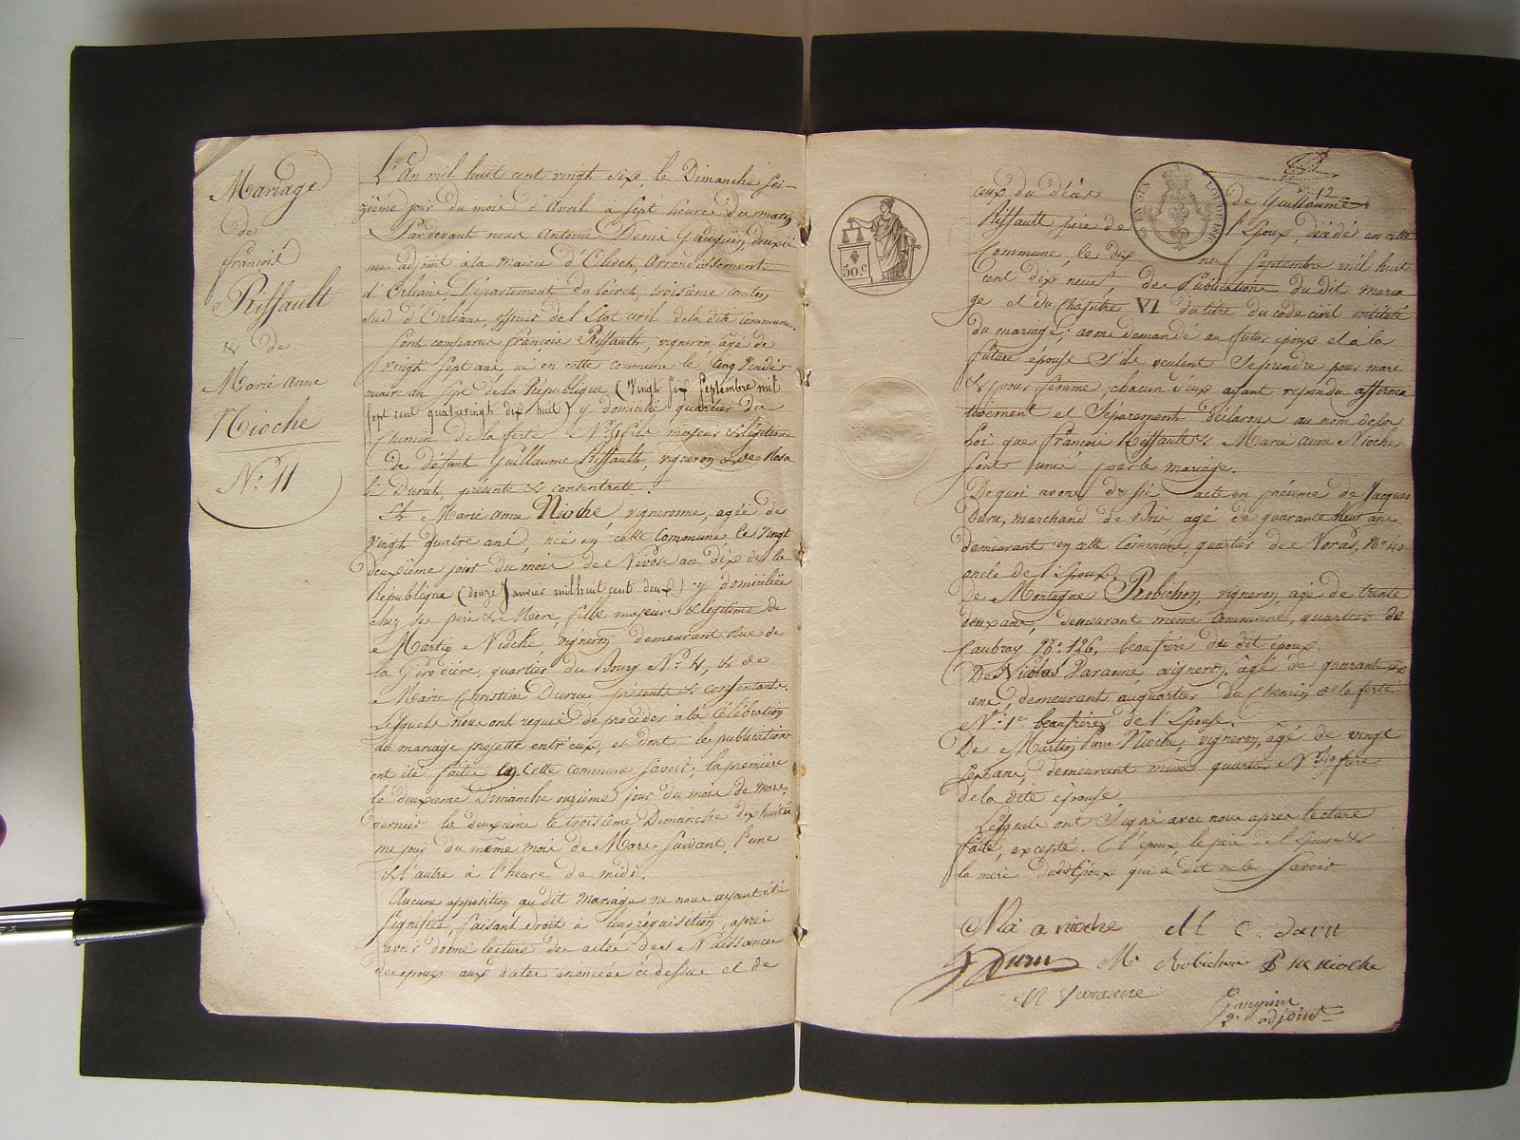 Mariage
de
François
Riffault
& de
Marie Anne
Nioche
N.º 11
L'An mil huit cent vingt six, le Dimanche sei-
zième jour du mois d'Avril à sept heures du matin
Pardevant nous Antoine Denis Janquin, deuxiè
me adjoint à la Mairie d'Olivet, Arrondissement
d'Orléans, Département du Loiret, troisième canton,
sud d'Orléans, officier de l'Etat civil de la dite Commune,
Sont comparus françois Riffault, vigneron âgé de
vingt sept ans, né en cette commune le cinq Vendé
miaire an sept de la République (Vingt six septembre mil
sept cent quatrevingt dix huit) y domicilié quartier du
chemin de la ferté N.º fils majeur & légitime
de défunt Guillaume Riffault, vigneron & de Rosa
lie Durut, présente & consentante.
Et Marie Anne Nioche vigneronne, agée de
vingt quatre ans, née en cette Commune le vingt
deuxième jour du mois de Nivose an dix de la
République (douze Janvier mil huit cent deux) y domiciliée
chez ses père & Mère, fille majeure & légitime de
Martin Nioche, vigneron demeurant rue de
la quartier du Bourg N.º 4, & de
Marie Christine Durue présente & consentante.
Lesquels nous ont requis de procéder à la célébration
du mariage projetté entr'eux, et dont les publications
ont été faites en cette commune savoir; la première
le deuxième Dimanche onzième jour du mois de Mars
dernier la deuxième le troisième Dimanche dix huitiè
me jour du même mois de Mars suivant, l'une
& l'autre à l'heure de midi.
Aucune opposition au dit mariage ne nous ayant été
signifiée, faisant droit à leur réquisition, après
avoir donné lecture des actes des Naissances
des époux aux dates énoncées ci dessus et de
12
ceux du décès de Guillaume
Riffault père de l'Epoux, décédé en cette
Commune, le dix septembre mil huit
cent dix neuf, des Publications du dit maria
ge et du Chapitre VI du titre du code civil intitulé
du mariage; avons demandé au futur époux et à la
future épouse s'ils veulent se prendre pour mari
& pour femme, chacun d'eux ayant répondu affirma
tivement et séparément déclarons au nom de la
loi que françois Riffault & Marie anne Nioche
sont unis par le mariage.
De quoi avons dressé acte en présence de Jacques
Duru, marchand de vin agé de quarante neuf ans
demeurant en cette Commune, quartier de N.º 40
oncle de l'Epoux
de Robichon, vigneron, agé de trente
deux ans, demeurant même Commune, quartier de
Caubray N.º 126, beaufrère du dit époux
De Nicolas Varanne, vigneron, âgé de quarante
ans, demeurant au quartier du Chemin de la ferté
N.º 1er beaufrère de l'Epouse.
De Martin Pierre Nioche, vigneron, agé de vingt
six ans, demeurant même quartier N.º frère
de la dite épouse.
Lesquels ont signé avec nous après lecture
faite, excepté l'époux, le père de l'épouse &
la mère de l'époux qui a dit ne le savoir
Ma a nioche M C. Durü
J Duru M. Robichon P M nioche
N Varanne
Janquin
2.e adjoint
50.c